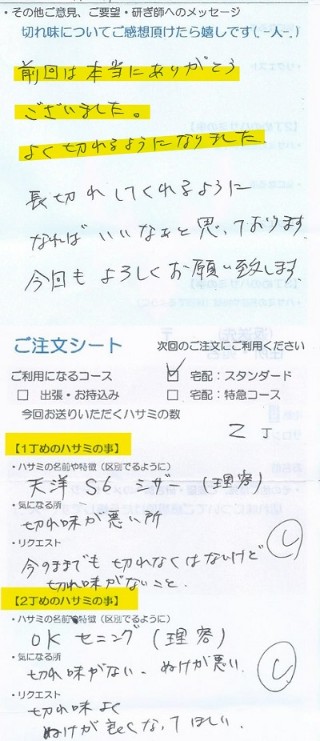 ・その他ご意見、ご要望・研ぎ師へのメッセージ
切れ味についてご感想頂けたら嬉しです(-人-.)
前回は本当にありがとう
ございました。
よく切れるようになりました
長切れしてくれるように
なればいいなぁと思っております
今回もよろしくお願い致します
ご注文シート 次回のご注文にご利用ください
ご利用になるコース ☑ 宅配：スタンダード
□ 出張・お持込み □ 宅配：特急コース
今回お送りいただくハサミの数
2丁
【1丁めのハサミの事】
・ハサミの名前や特徴（区別でるように）
天洋 S6 シザー (理容)
・気になる所
切れ味が悪い所
・リクエスト
今のままでも切れなくはないけど
切れ味がないこと.
【2丁めのハサミの事】
・ハサミの名前や特徴（区別でるように）
OK セニング (理容)
・気になる所
切れ味がない、ぬけが悪い
・リクエスト
切れ味よく
ぬけが良くなってほしい.